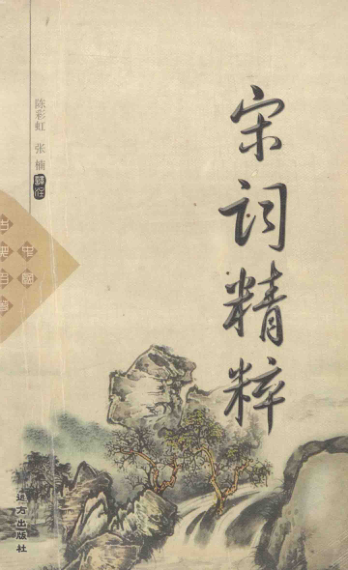 宋词精粹
陈彩虹 张楠 译注
中国
古典百部
远方出版社